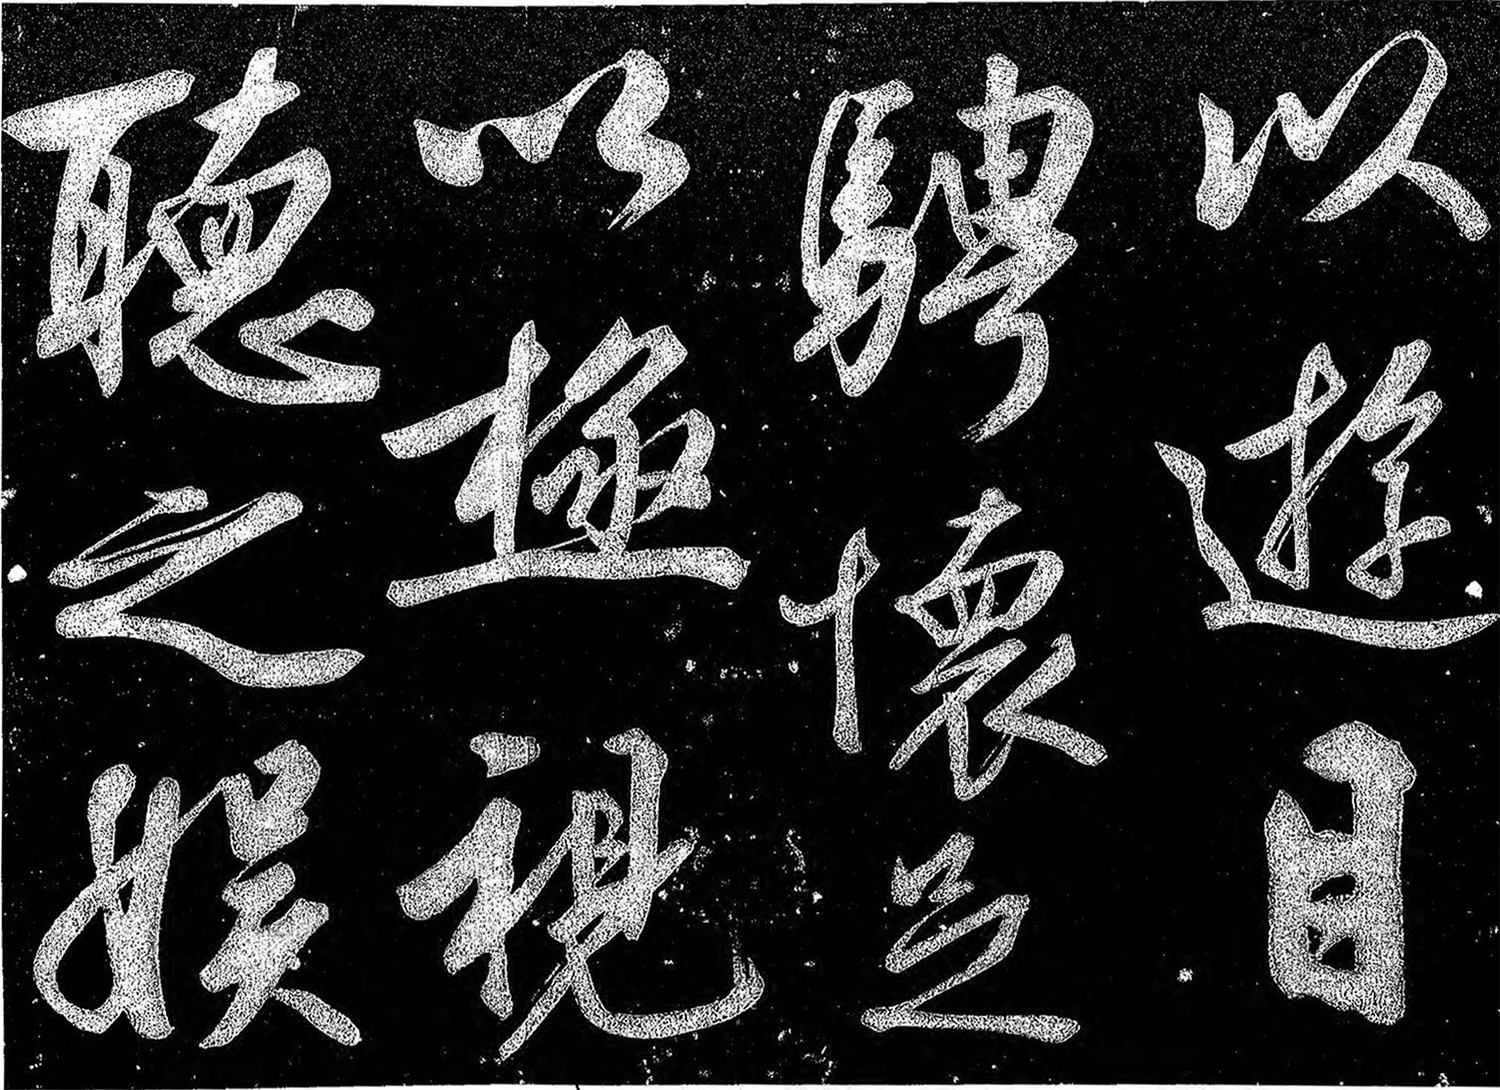 以遊目
騁懷足
以極視
聽之娛